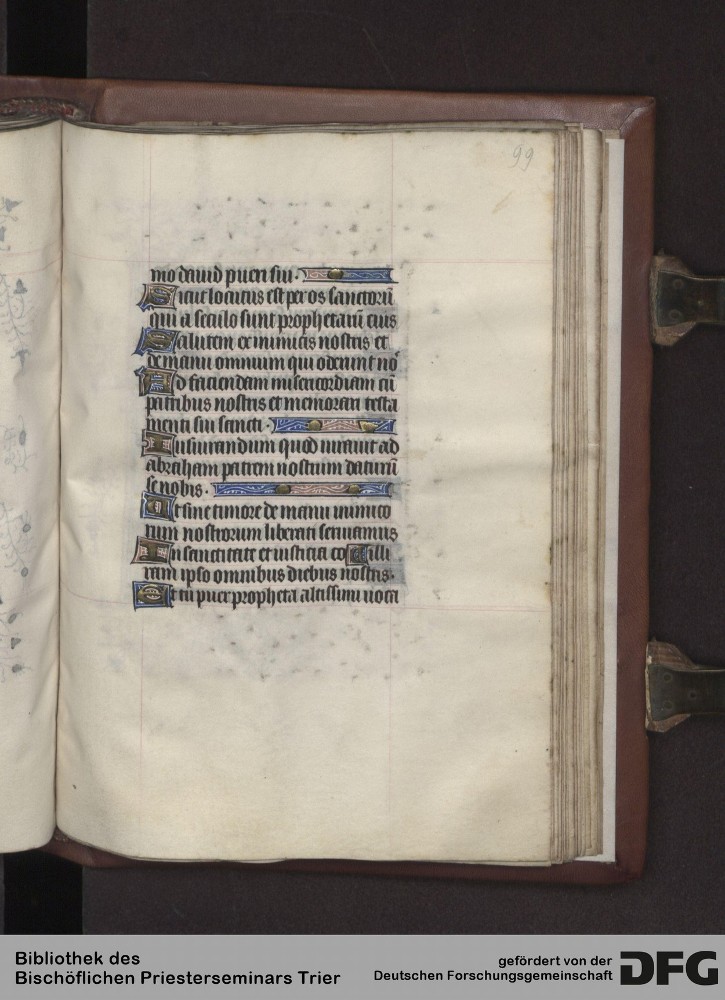 99
mo dauid pueri sui.
Sicut locutus est per os sanctorū
qui a seculo sunt prophetarū eius
Salutem ex inimicis nostris et
de manu omnium qui oderunt no
Ad faciendam misericordiam cū
patribus nostris et memorari testa
menti sui sancti.
Iusiurandum quod iurauit ad
abraham patrem nostrum daturū
se nobis.
Ut sine timore de manu inimico
rum nostrorum liberati seruiamus
In sanctitate et iusticia co illi
ram ipso omnibus diebus nostris.
Et tu puer propheta altissimi uoca
Bibliothek des
Bischöflichen Priesterseminars Trier
gefördert von der
Deutschen Forschungsgemeinschaft
DFG